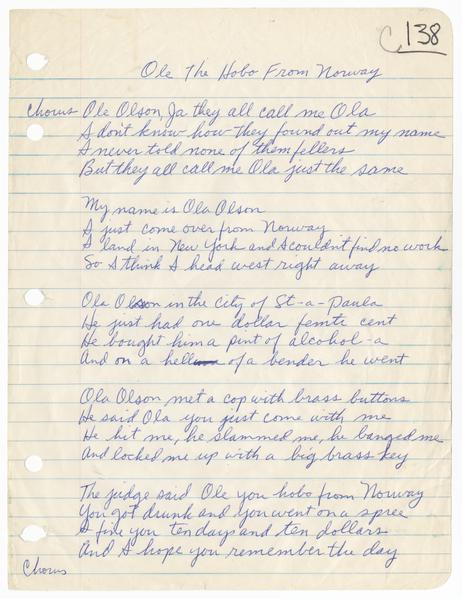 C, 138
Ole The Hobo From Norway
Chorus Ole Olson, Ja they all call me Ola
I don't know how they found out my name
I never told none of them fellers
But they all call me Ola just the same
My name is Ola Olson
I just come over from Norway
I land in New York and I couldn't find no work
So I think I head west right away
Ola Olson in the city of St-a-Paula
He just had one dollar femti cent
He bought him a pint of alcohol-a
And on a hell of a bender he went
Ola Olson, met a cop with brass buttons
He said Ola you just come with me
He hit me, he slammed me, he banged me
And locked me up with a big brass key
The judge said Ole you hobo from Norway
You got drunk and you went on a spree
I fine you ten days and ten dollars
And I hope you remember the day
Chorus